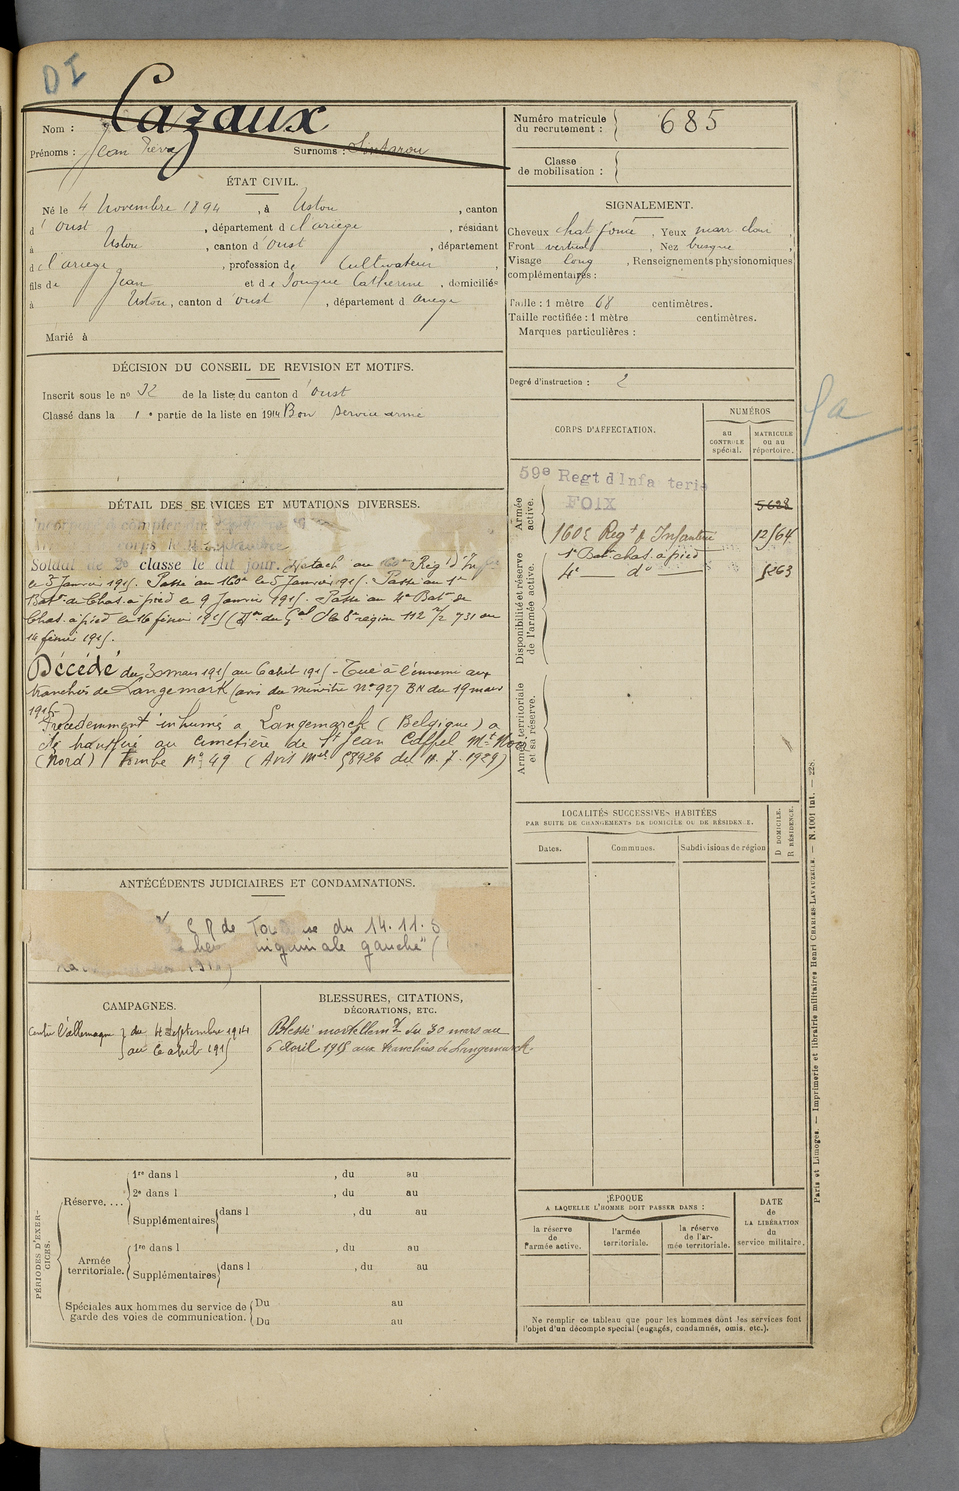 DI
Cazaux
Nom :
Prénoms : Jean Pierre Surnoms :
Numéro matricule
du recrutement : 685
Classe
de mobilisation :
ÉTAT CIVIL.
Né le 4 Novembre 1894, à Ustou, canton
d'Oust, département de l'ariège, résidant
à Ustou, canton d'Oust, département
de l'ariège, profession de Cultivateur,
fils de Jean et de Souquet Catherine, domiciliés
à Ustou, canton d Oust, département d ariège
Marié à
SIGNALEMENT.
Cheveux chat foncé, Yeux marr. clair,
Front vertical, Nez busqué,
Visage long, Renseignements physionomiques
complémentaires :
Taille : 1 mètre 68 centimètres.
Taille rectifiée : 1 mètre centimètres.
Marques particulières :
DÉCISION DU CONSEIL DE REVISION ET MOTIFS.
Inscrit sous le nº 32 de la liste du canton d'Oust
Classé dans la 1e partie de la liste en 1914 Bon service armé
Degré d'instruction : 2
CORPS D'AFFECTATION.
NUMÉROS
au
CONTROLE
spécial.
MATRICULE
ou au
répertoire.
Armée
active.
59e Regt d'Infanterie
FOIX
5628
160e Regt d'Infanterie 12564
1er Baton chas. à pied
4e do 5263
Disponibilité et réserve
de l'armée active.
Armée territoriale
et sa réserve.
DÉTAIL DES SERVICES ET MUTATIONS DIVERSES.
Soldat de 2e classe le dit jour. Détaché au 160e Reg. d'Inf
le 5 Janvier 1915. Passé au 160e le 5 Janvier 1915. Passé au 1er
Baton de Chas. à pied le 9 Janvier 1915. Passé au 4e Baton de
Chas. à pied le 16 février 1915 (Don du Gal Ct la 8e région 112 2/2 731 du
14 février 1915.
Décédé du 30 mars 1915 au 6 abril 1915 - Tué à l'ennemi aux
tranchées de Langemark (avis du ministre Nº 927 BN du 19 mars
1916)
Précédemment inhumé à Langemarck (Belgique) a
été transféré au cimetière de St Jean Cappel Mt Noir
(Nord) Tombe Nº 49 (Avis Mel 58926 du 11.7.1929)
LOCALITÉS SUCCESSIVES HABITÉES
PAR SUITE DE CHANGEMENTS DE DOMICILE OU DE RÉSIDENCE.
D DOMICILE.
R RÉSIDENCE.
Dates. Communes. Subdivisions de région
ANTÉCÉDENTS JUDICIAIRES ET CONDAMNATIONS.
de Toulouse du 14.11.3
inguinale gauche" (
CAMPAGNES.
Contre l'allemagne du 4 Septembre 1914
au 6 abril 1915
BLESSURES, CITATIONS,
DÉCORATIONS, ETC.
Blessé mortellemt du 30 mars au
6 Avril 1915 aux tranchées de Langemarck.
PÉRIODES D'EXERCICES.
Réserve....
1re dans l , du au
2e dans l , du au
Supplémentaires dans l , du au
Armée
territoriale.
1re dans l , du au
Supplémentaires dans l , du au
Spéciales aux hommes du service de
garde des voies de communication.
Du au
Du au
ÉPOQUE
A LAQUELLE L'HOMME DOIT PASSER DANS :
la réserve
de
l'armée active.
l'armée
territoriale.
la réserve
de l'ar-
mée territoriale.
DATE
de
LA LIBÉRATION
du
service militaire.
Ne remplir ce tableau que pour les hommes dont les services font
l'objet d'un décompte spécial (engagés, condamnés, omis, etc.).
Paris et Limoges. — Imprimerie et librairie militaires Henri CHARLES-LAVAUZELLE. — N.1001 int. — 228.